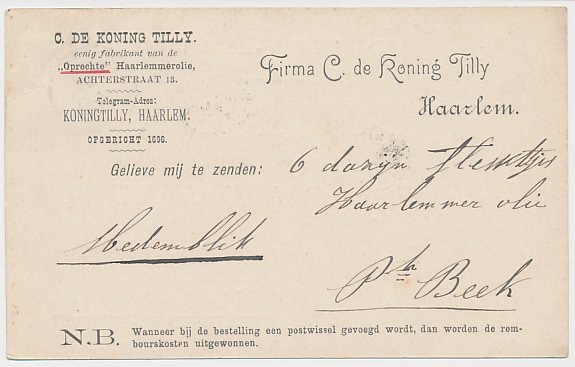 C. DE KONING TILLY.
eenig fabrikant van de
„Oprechte” Haarlemmerolie,
ACHTERSTRAAT 13.
Telegram-Adres:
KONINGTILLY, HAARLEM.
OPGERICHT 1696.
Firma C. de Koning Tilly
Haarlem.
Gelieve mij te zenden: 6 dozijn flesschjes
Haarlemmer olie
Medemblik
Beek
N.B. Wanneer bij de bestelling een postwissel gevoegd wordt, dan worden de rem-
bourskosten uitgewonnen.